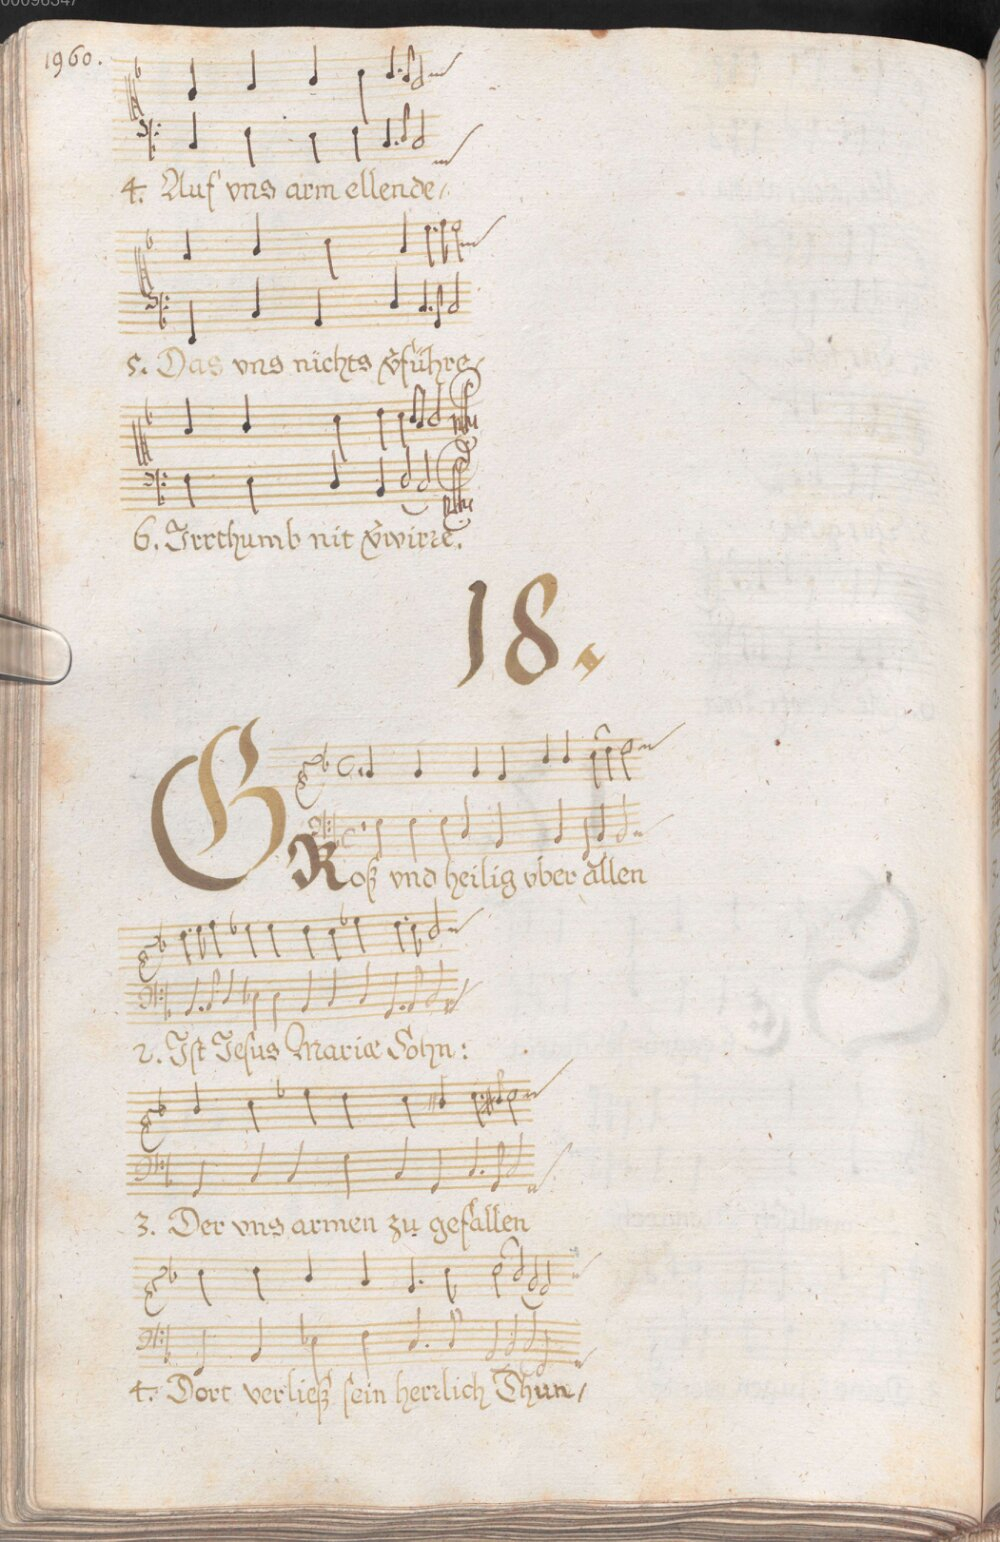 00096347
1960.
4. Auf vns arm ellende/
5. Das vns nichts v̈führe/
6. Irrthumb nit v̈wirre.
18.
GRoß vnd heilig vber allen
2. Ist Jesus Mariæ Sohn:
3. Der vns armen zu gefallen
4. Dort verließ sein herrlich Thun/